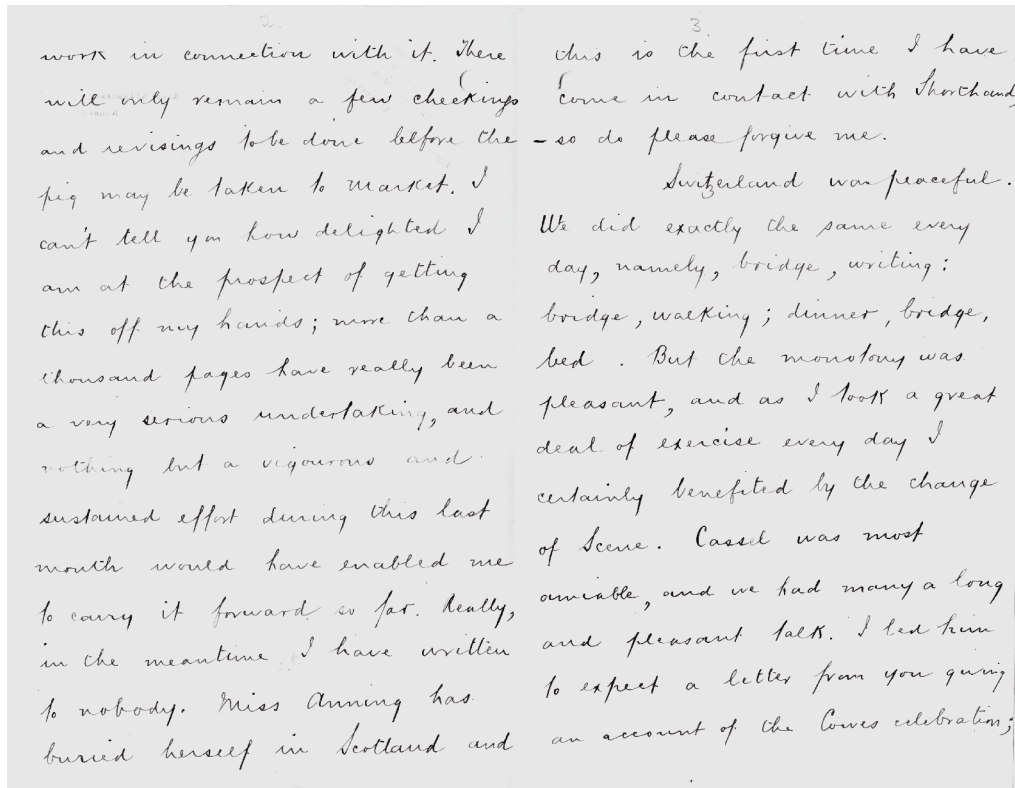 2.
work in connection with it. There
will only remain a few checkings
and revisings to be done before the
pig may be taken to market. I
can't tell you how delighted I
am at the prospect of getting
this off my hands; more than a
thousand pages have really been
a very serious undertaking, and
nothing but a vigourous and
sustained effort during this last
month would have enabled me
to carry it forward so far. Really,
in the meantime I have written
to nobody. Miss Anning has
buried herself in Scotland and
3
this is the first time I have
come in contact with Shorthand,
- so do please forgive me.
Switzerland was peaceful.
We did exactly the same every
day, namely, bridge, writing:
bridge, walking; dinner, bridge,
bed. But the monotony was
pleasant, and as I took a great
deal of exercise every day I
certainly benefited by the change
of Scene. Cassel was most
amiable, and we had many a long
and pleasant talk. I led him
to expect a letter from you giving
an account of the Cowes celebration;